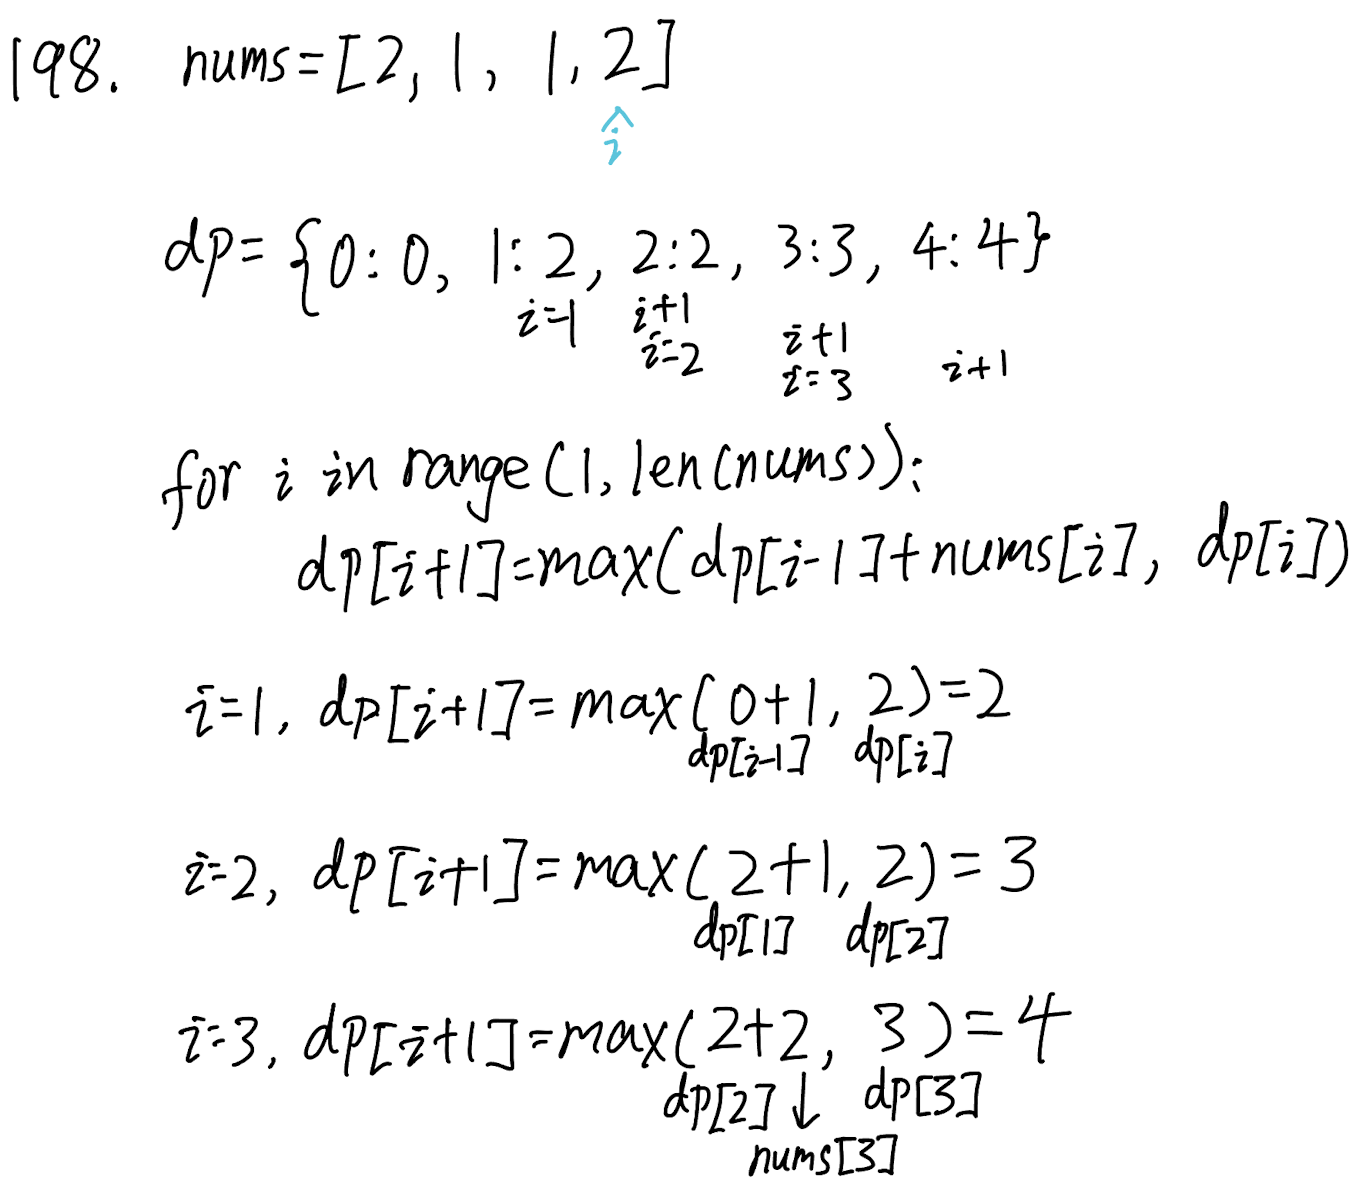 198. nums=[2, 1, 1, 2]
i
dp={0:0, 1:2, 2:2, 3:3, 4:4}
i=1 i+1 i+1 i+1
i=2 i=3
for i in range(1, len(nums)):
dp[i+1]=max(dp[i-1]+nums[i], dp[i])
i=1, dp[i+1]=max(0+1, 2)=2
dp[i-1] dp[i]
i=2, dp[i+1]=max(2+1, 2)=3
dp[1] dp[2]
i=3, dp[i+1]=max(2+2, 3)=4
dp[2]↓ dp[3]
nums[3]